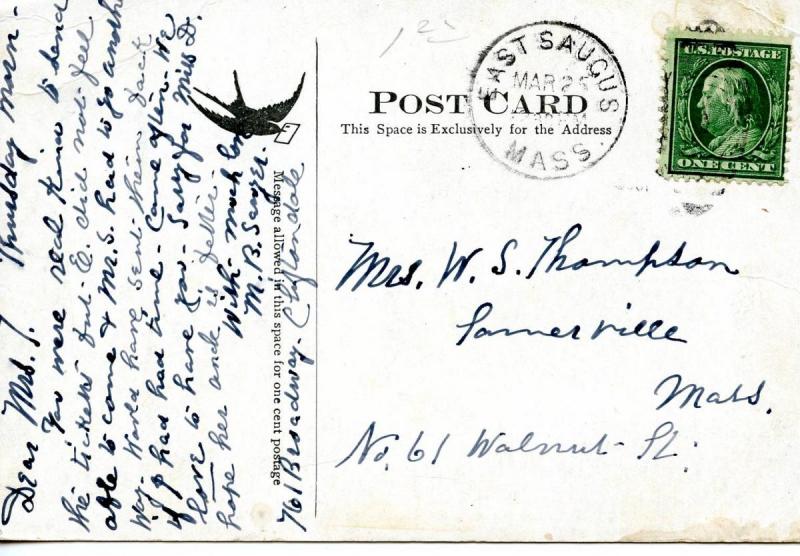 Thursday morn-
Dear Mrs. T.
You were real kind to send
the tickets but E. did not feel
able to come & Mr. S. had to go another
way. Would have sent them back
if I had had time - Came often. We
love to have you. Sorry for Miss D.
hope her ancle is better.
With much love
M. B. Sawyer.
761 Broadway.
Message allowed in this space for one cent postage
1 25
EAST SAUGUS
MAR 25
MASS.
U.S. POSTAGE
ONE CENT
POST CARD
This Space is Exclusively for the Address
Mrs. W. S. Thompson
Somerville
Mass.
No. 61 Walnut St.